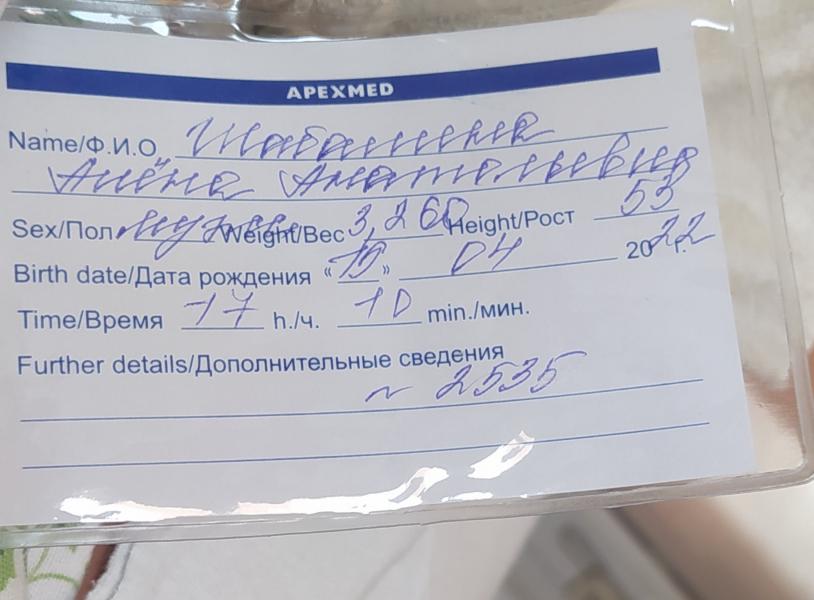 APEXMED
Name/Ф.И.О. Шабашева
Алёна Анатольевна
Sex/Пол муж Weight/Вес 3,260 Height/Рост 53
Birth date/Дата рождения « » 04 2022 г.
Time/Время 17 h./ч. 10 min./мин.
Further details/Дополнительные сведения
~ 2535